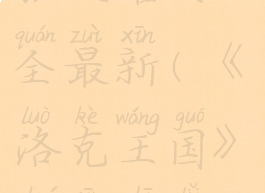 quán zuì xīn
全最新(《
luò kè wáng guó
洛克王国》